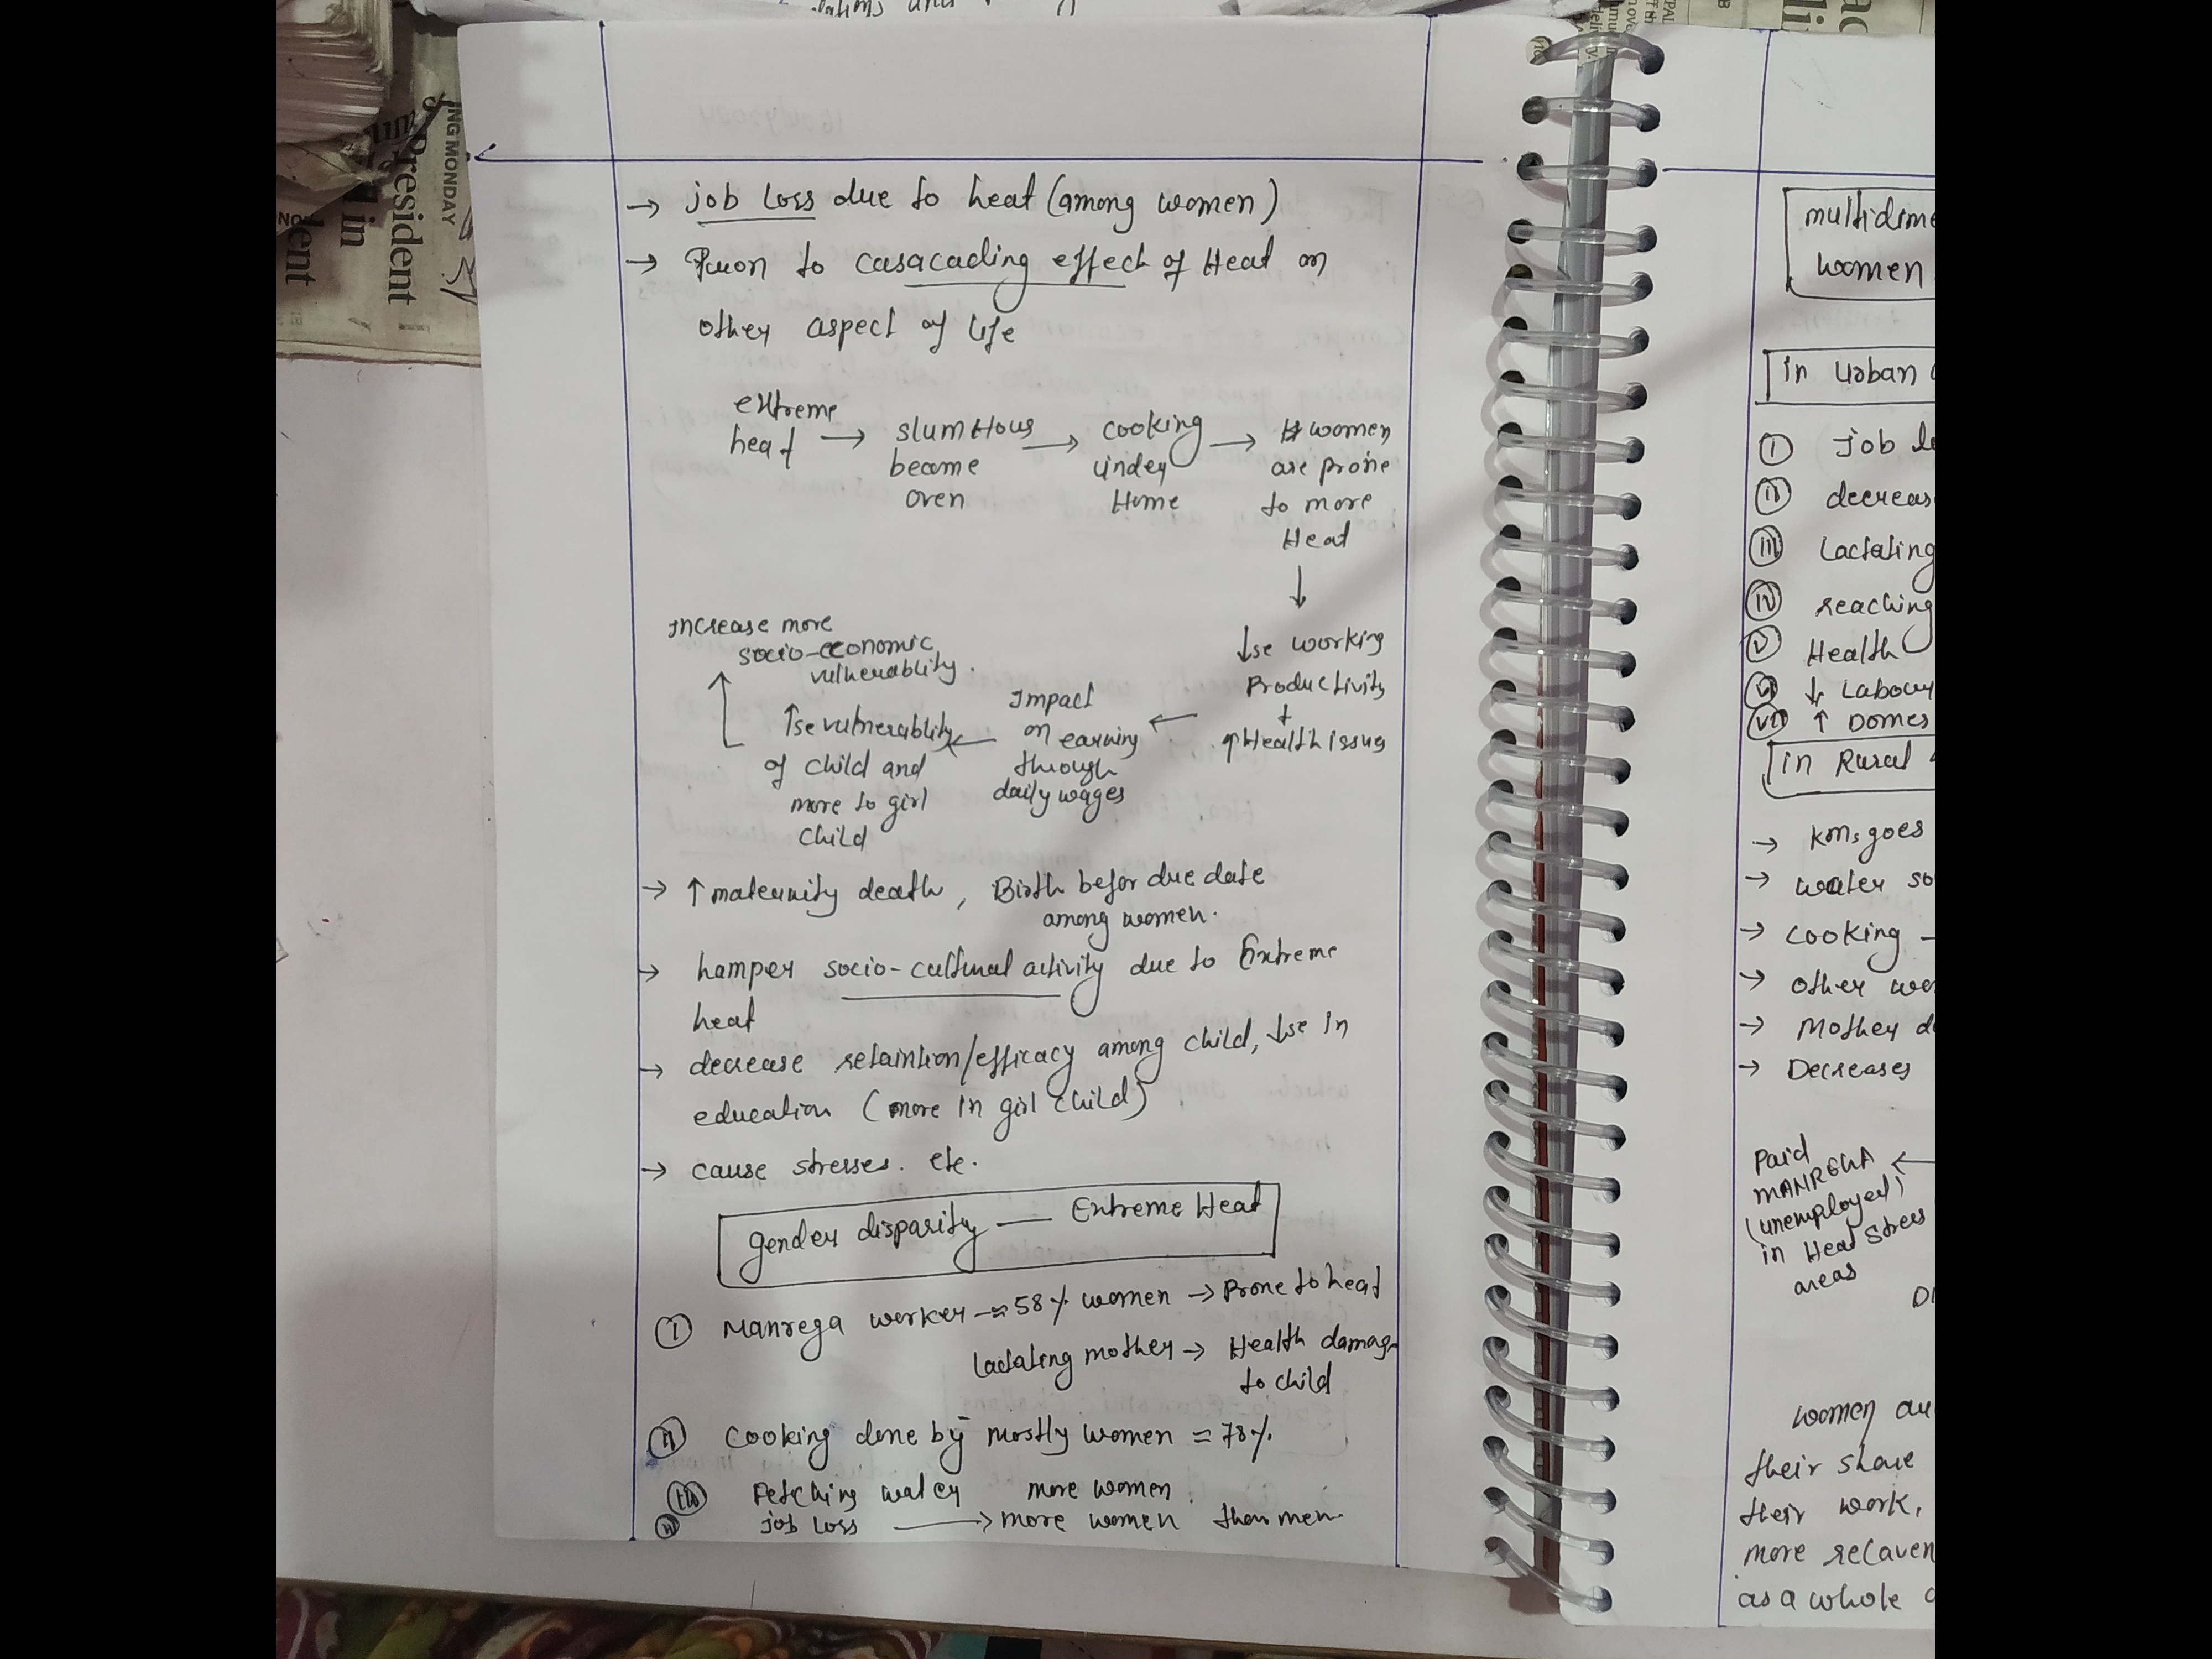 → job loss due to heat (among women)
→ Pruon to casacading effect of Heat on
other aspect of life
extreme
heat → slum Hous
become
oven → cooking
undey
Home → women
are prone
to more
Heat
↓
↓se working
Productivity
+
↑Health issues
← Impact
on earning
through
daily wages
← ↑se vulnerablity
of child and
more to girl
child
↑ Increase more
socio-economic
vulnerablity.
→ ↑ maternity death, Birth befor due date
among women.
→ hamper socio-cultural activity due to Extreme
heat
→ decrease retaintion/efficacy among child, ↓se in
education (more in girl child)
→ cause stresses. etc.
Gender disparity — Extreme Heat
(I) Manrega worker → ≈58% women → Prone to heat
lactating mother → Health damag
to child
(II) Cooking done by mostly women = 78%.
(III) Fetching water more women.
(IV) Job loss → more women than men.
multidime
women
in Urban
(I) Job l
(II) decreas
(III) Lactating
(IV) reaching
(V) Health
(VI) ↓ Labour
(VII) ↑ Domes
in Rural
→ Kms goes
→ water so
→ cooking –
→ other wo
→ Mothey d
→ Decreases
Paid
MANREGA ←
(unemployed)
in Heat Stress
areas
Di
women au
their share
their work,
more relaven
as a whole
President
in
ING MONDAY
dent